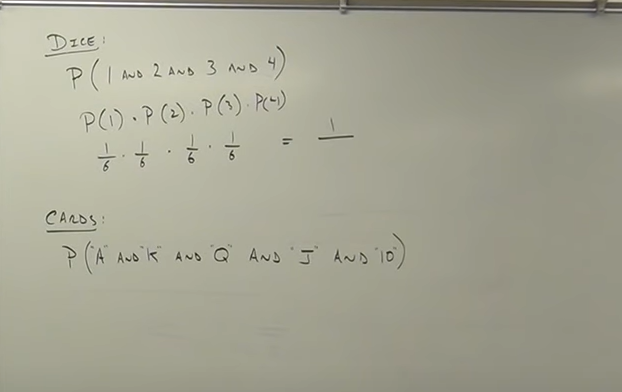 DICE:
P(1 AND 2 AND 3 AND 4)
P(1) · P(2) · P(3) · P(4)
1/6 · 1/6 · 1/6 · 1/6 = 1/
CARDS:
P("A" AND "K" AND "Q" AND "J" AND "10")